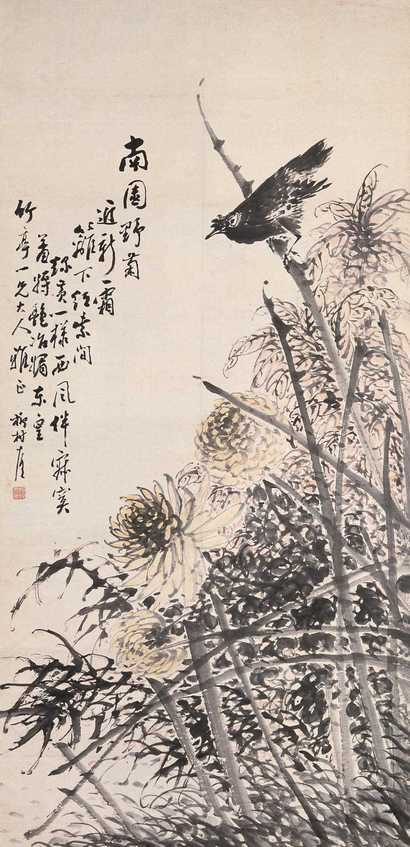 南園野菊
近新霜
籬下經素間
輕黃一樣西風伴寂寞
羞將艷冶媚東皇
竹亭一兄大人雅正
村崖